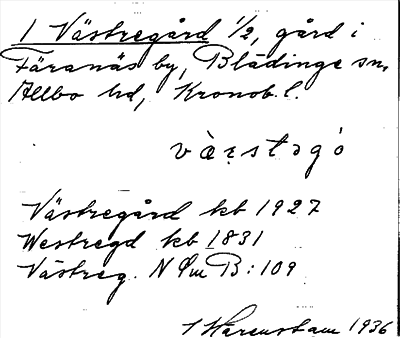 1 Västregård 1/2, gård i
Färanäs by, Blädinge sn,
Allbo hd, Kronob. l.
Västregård kb 1927
Westregd kb 1831
Västreg. N Öm B: 109
1936